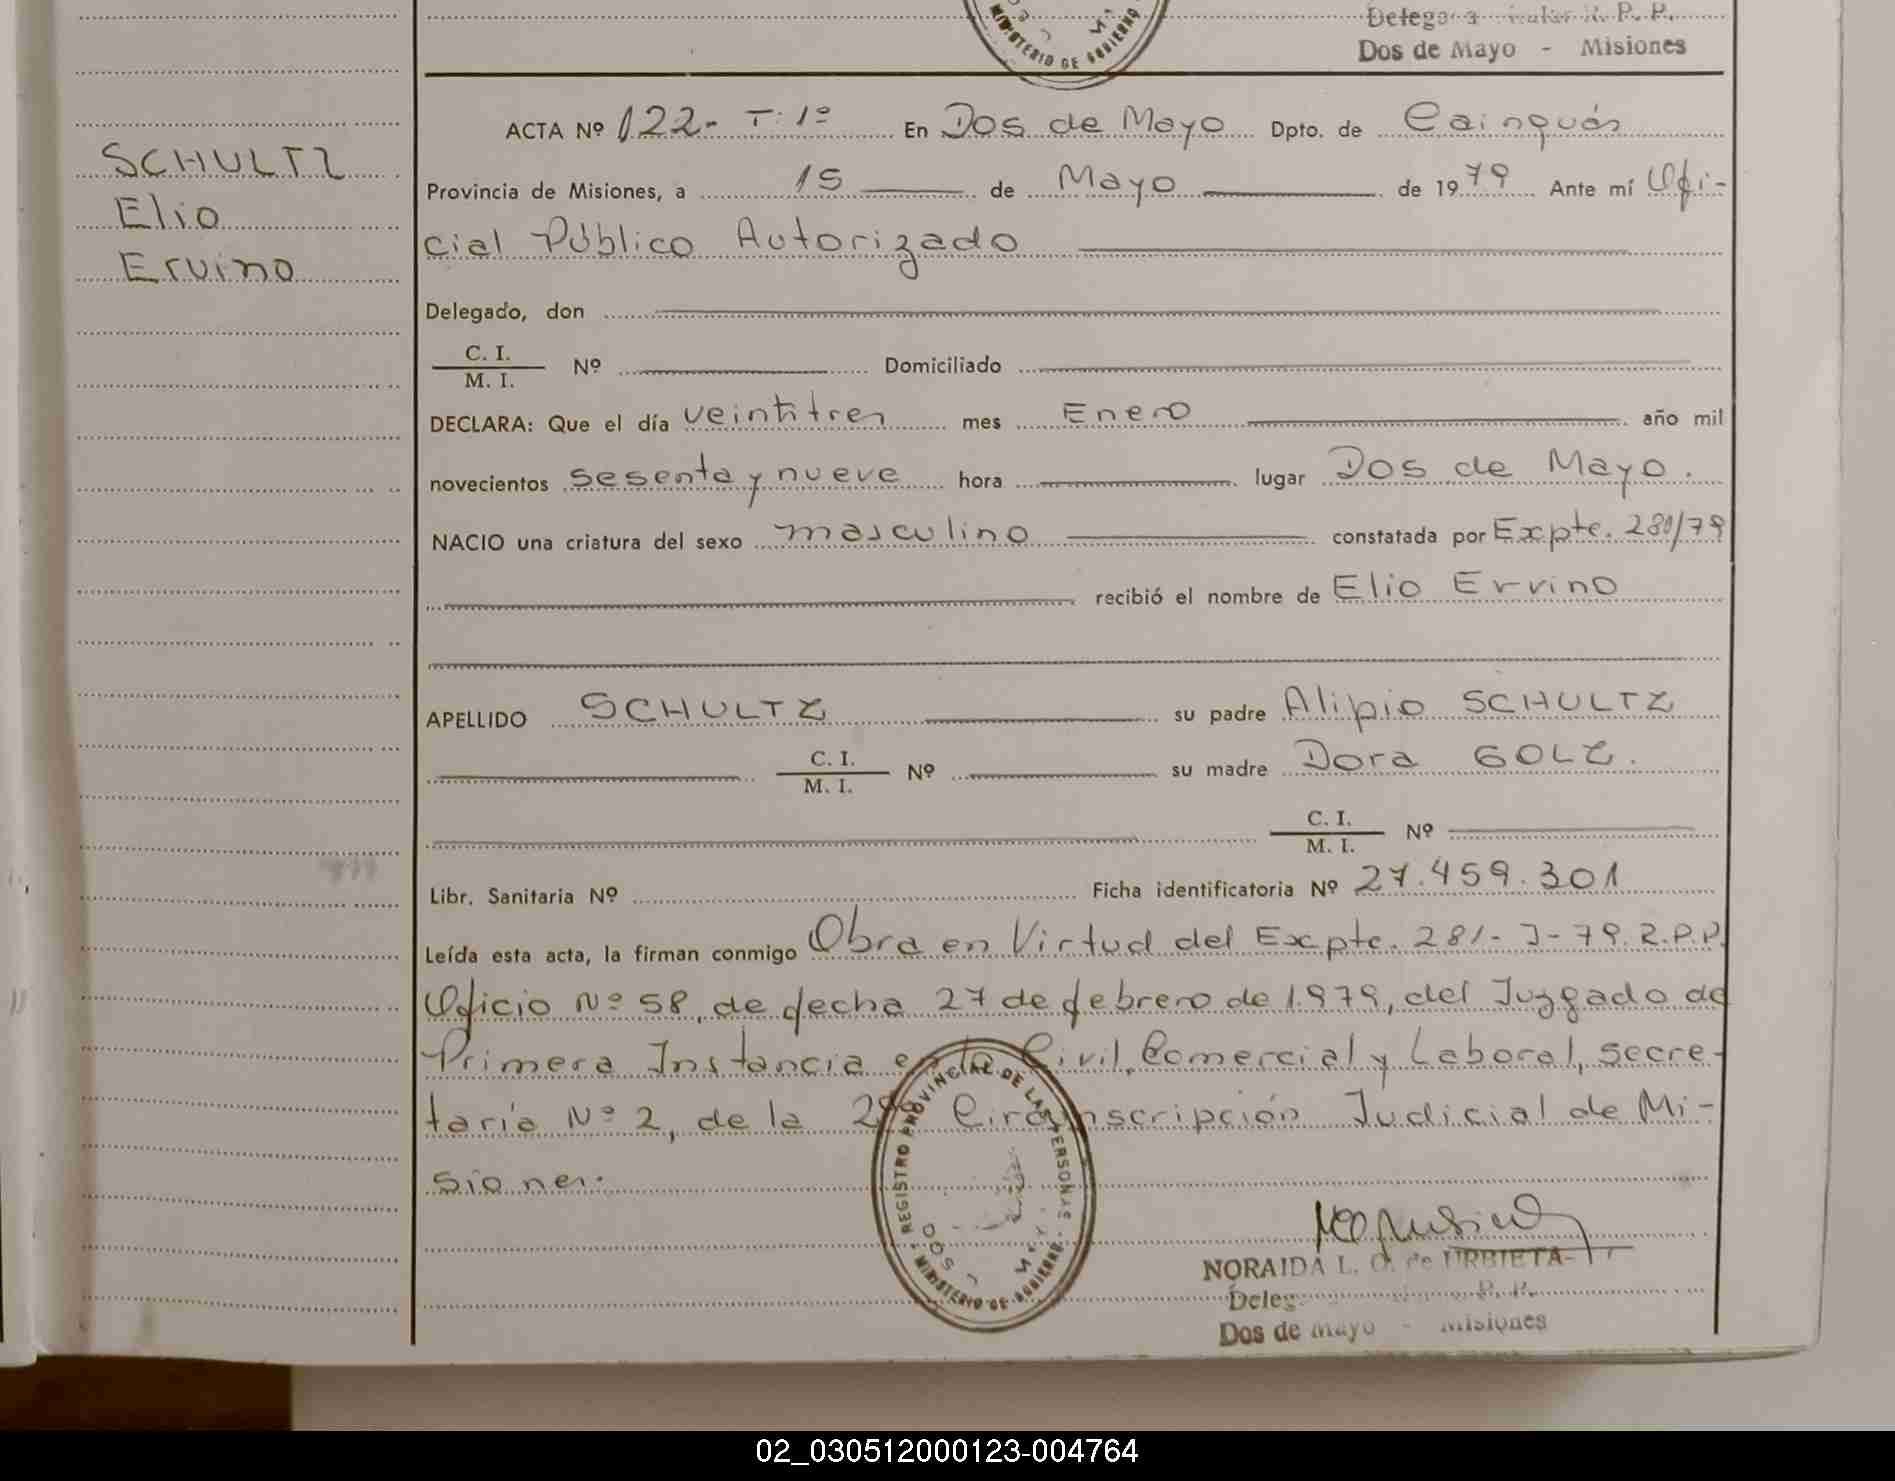 Dos de Mayo - Misiones
MINISTERIO DE GOBIERNO
ACTA Nº 122- T: 1º En Dos de Mayo Dpto. de Cainguás
SCHULTZ
Elio
Ervino
Provincia de Misiones, a 15 de Mayo de 1979 Ante mí Ofi-
cial Público Autorizado
Delegado, don
C. I.
M. I.
Nº Domiciliado
DECLARA: Que el día veintitres mes Enero año mil
novecientos sesenta y nueve hora lugar Dos de Mayo.
NACIO una criatura del sexo masculino constatada por Expte. 281/79
recibió el nombre de Elio Ervino
APELLIDO SCHULTZ su padre Alipio SCHULTZ
C. I.
M. I.
Nº su madre Dora GOLZ.
C. I.
M. I.
Nº
Libr. Sanitaria Nº Ficha identificatoria Nº 27.459.301
Leída esta acta, la firman conmigo Obra en Virtud del Expte. 281-J-79. R.P.P.
Oficio Nº 58, de fecha 27 de febrero de 1.979, del Juzgado de
Primera Instancia en lo Civil, Comercial y Laboral, secre-
taría Nº 2, de la 2da Circunscripción Judicial de Mi-
siones.
REGISTRO PROVINCIAL DE LAS PERSONAS
MINISTERIO DE GOBIERNO
NORAIDA L. O. de URBIETA
Dos de Mayo - Misiones
02_030512000123-004764